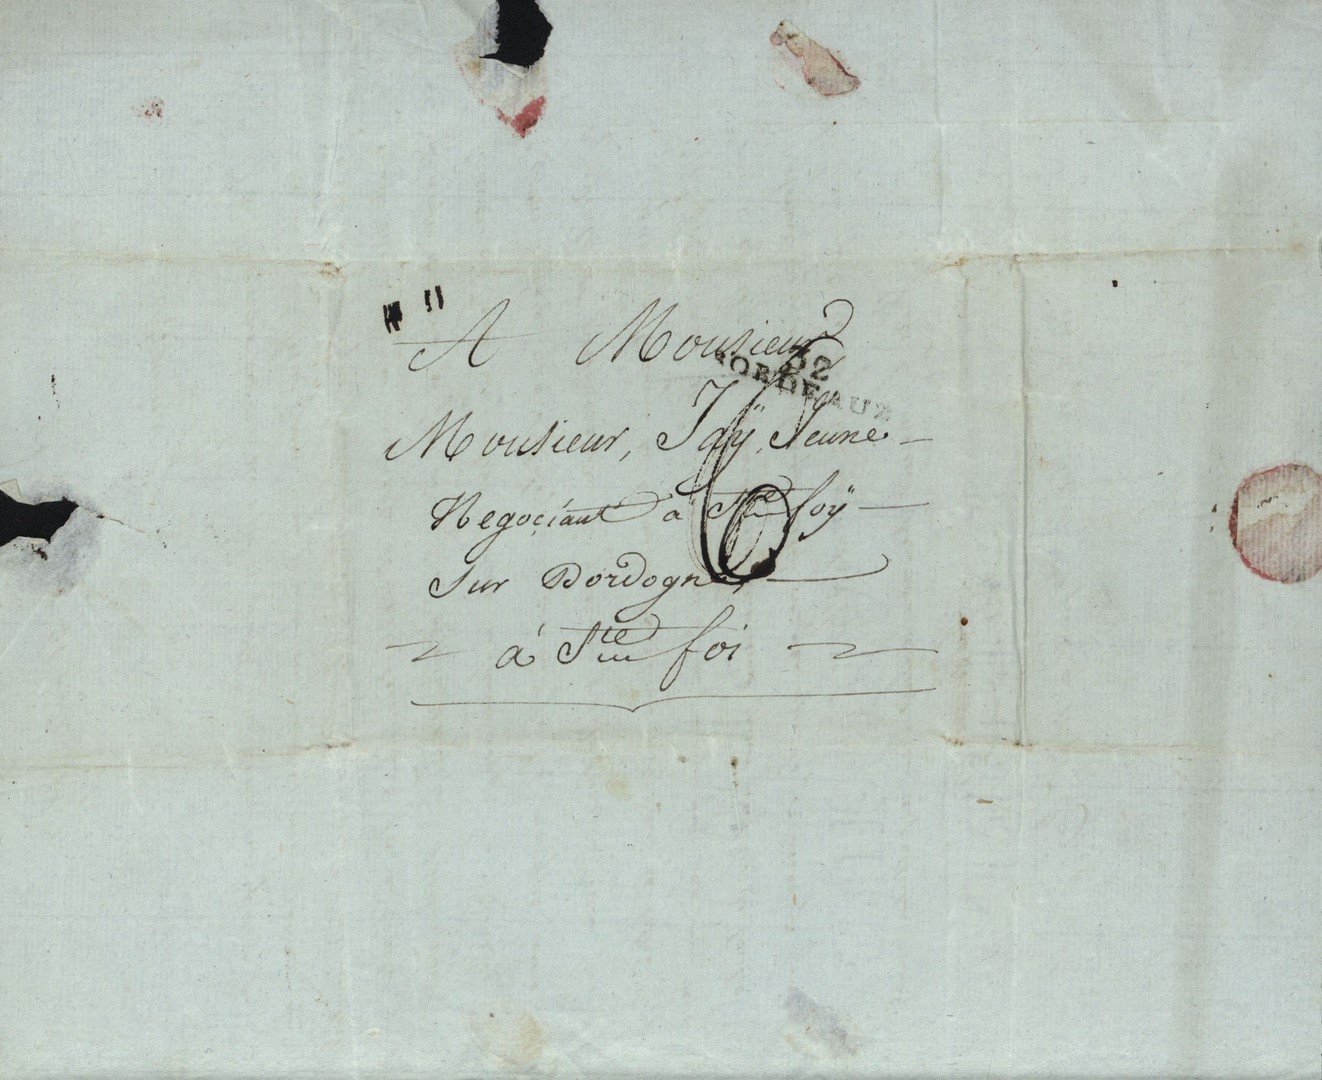 A Monsieur
32
BORDEAUX
Monsieur, Jaÿ Jeune
6
Negociant à Ste foÿ
sur Dordogne
à Ste foi